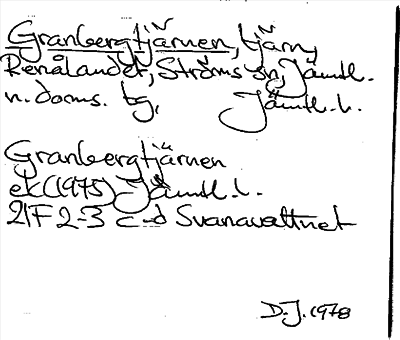 Granbergtjärnen, tjärn,
Renålandet, Ströms sn, Jämtl.
n. doms. tg, Jämtl. l.
Granbergtjärnen
ek (1975) Jämtl. l.
21F 2-3 c-d Svanavattnet
D.J. 1978